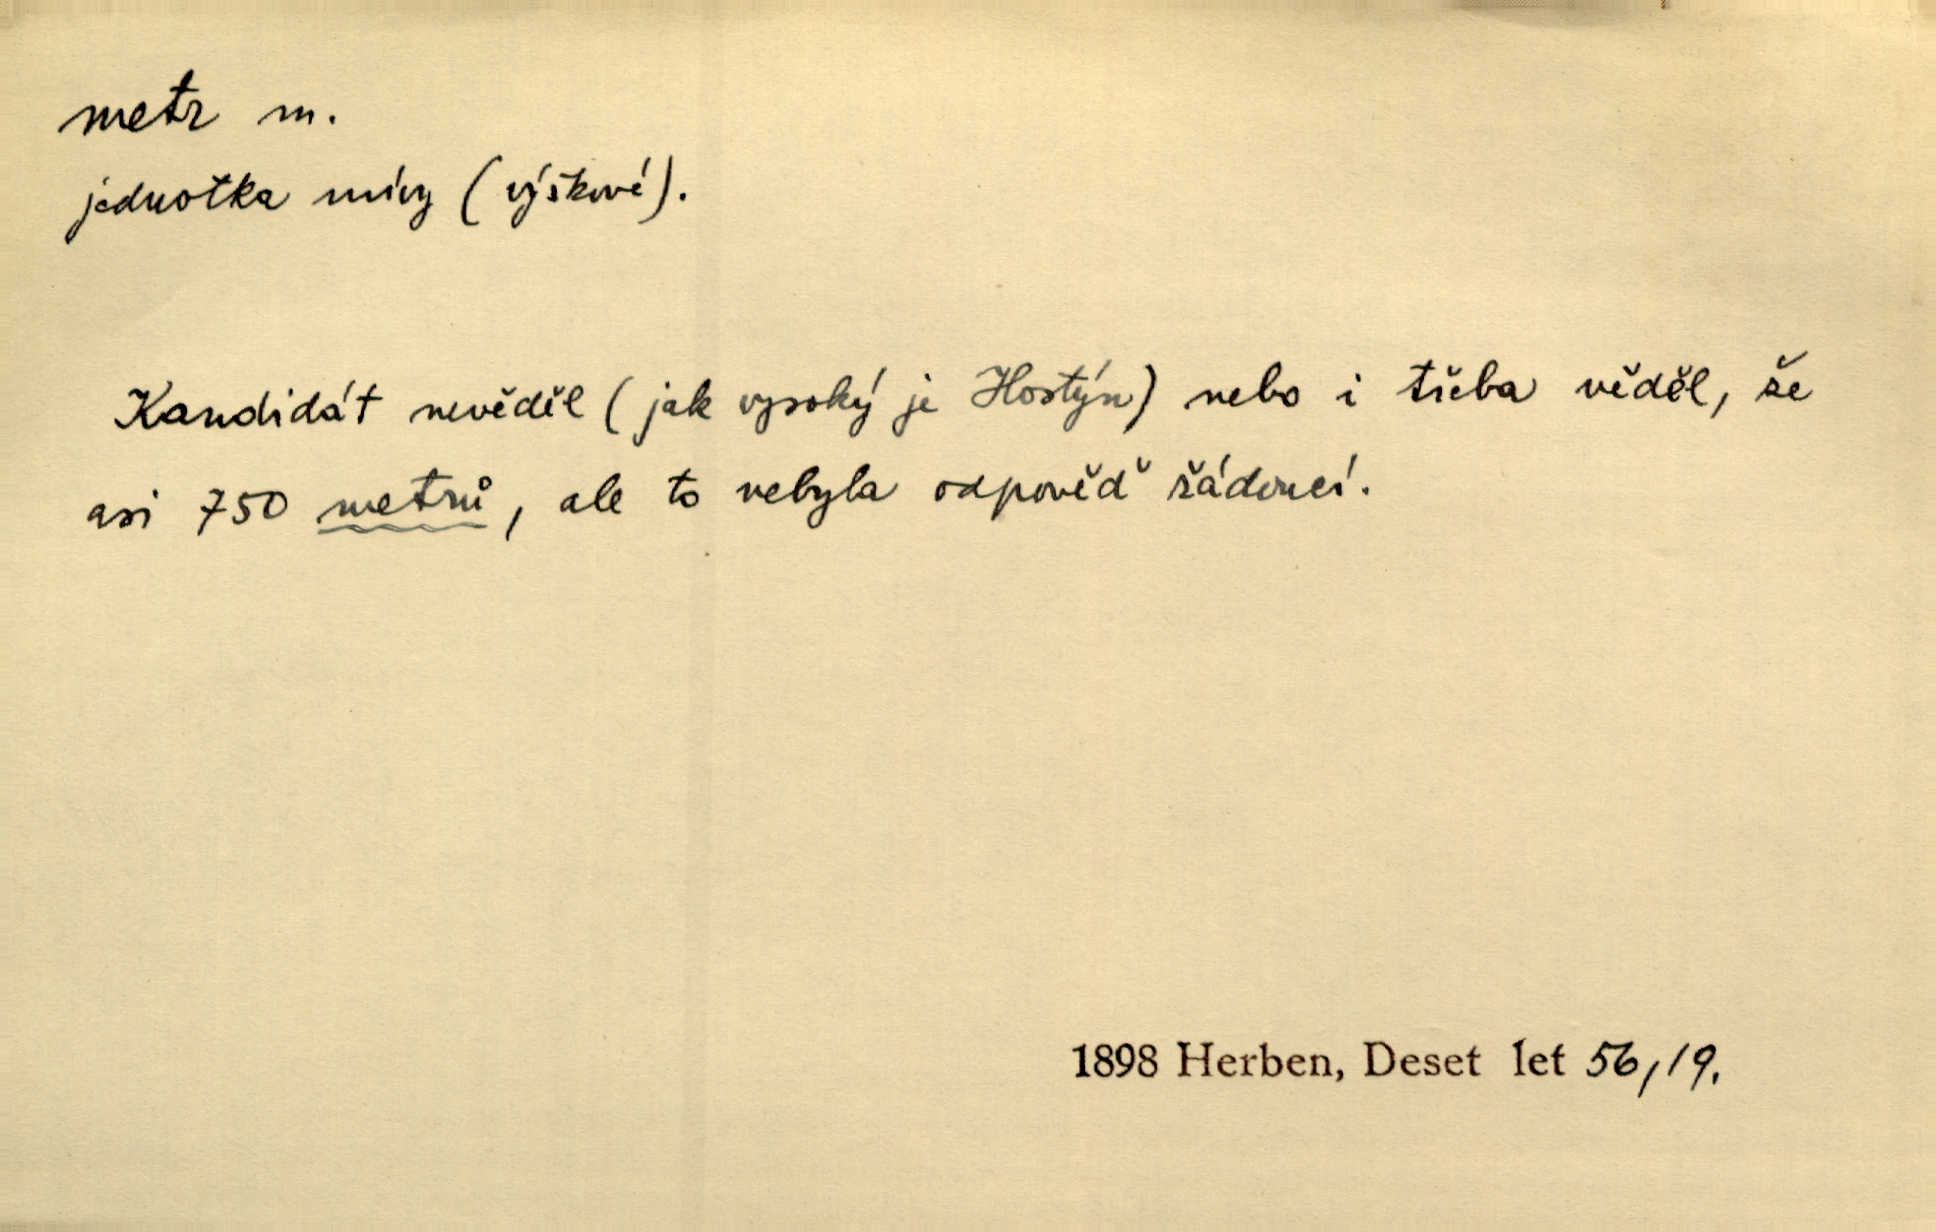 metr m.
jednotka míry (výškové).
Kandidát nevěděl (jak vysoký je Hostýn) nebo i třeba věděl, že
asi 750 metrů, ale to nebyla odpověď žádoucí.
1898 Herben, Deset let 56,19.